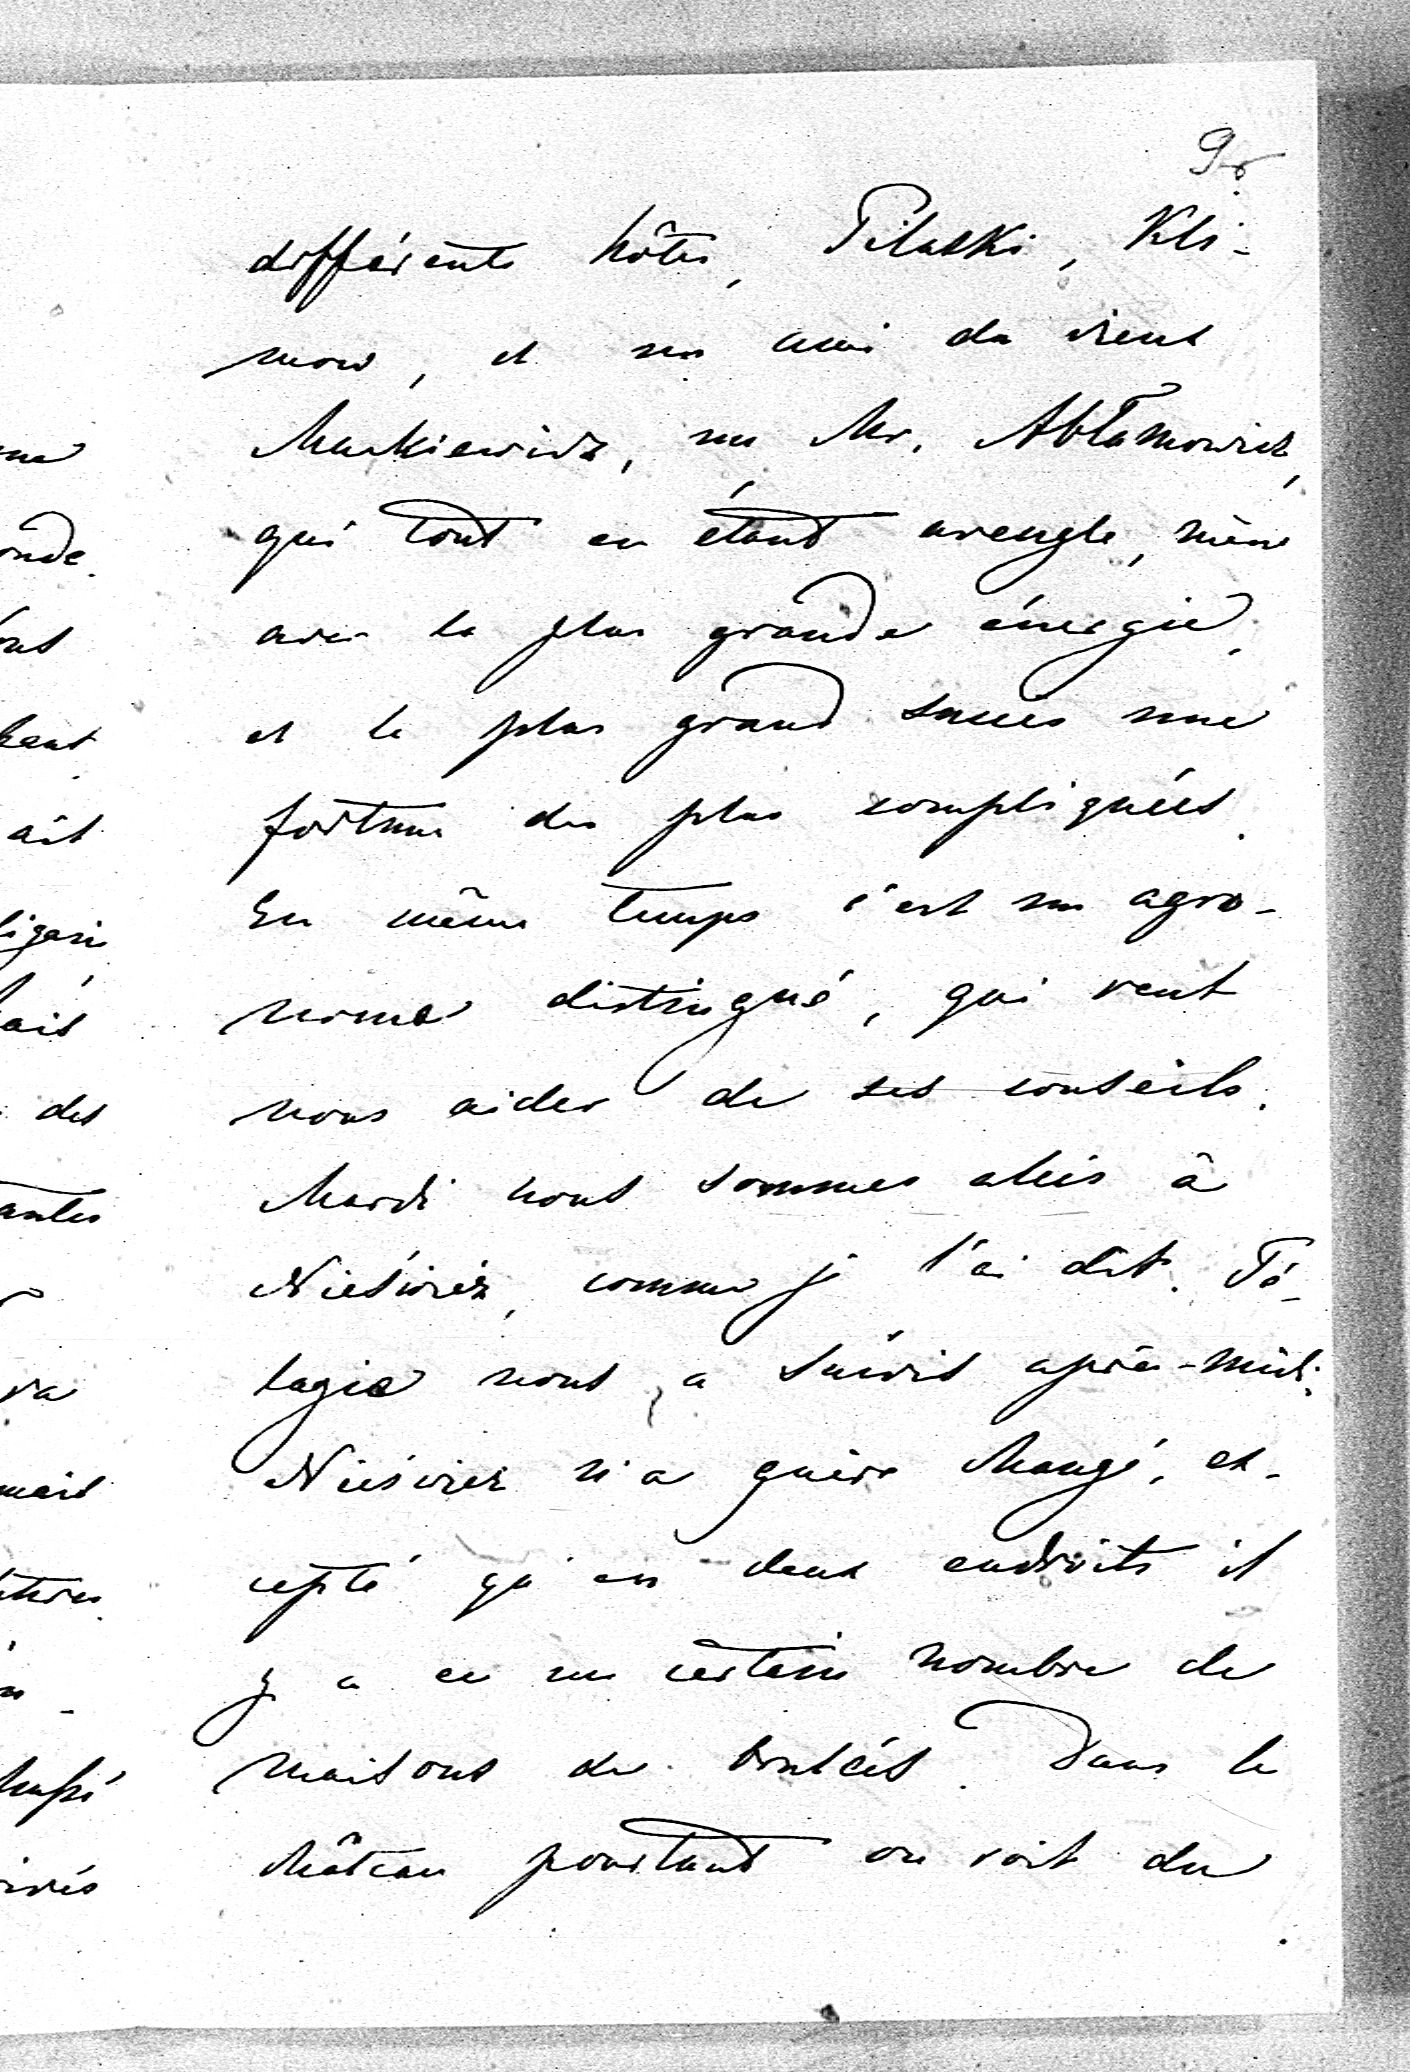 différents hôtes, Pilatski, Kli-
mow, et un ami du vieux
Markiewicz, un Mr. Abłamowicz,
qui tout en étant aveugle, mène
avec la plus grande énergie,
et le plus grand succès une
fortune des plus compliquées.
En même temps c'est un agro-
nome distingué, qui veut
nous aider de ses conseils.
Mardi nous sommes allés à
Nieśwież, comme je l'ai dit. Pé-
lagie nous a suivis après-midi.
Nieśwież n'a guère changé, ex-
cepté qu'en deux endroits il
y a eu un certain nombre de
maisons de brulées. Dans le
château pourtant on voit du
me
onde.
ait
des
antes
va